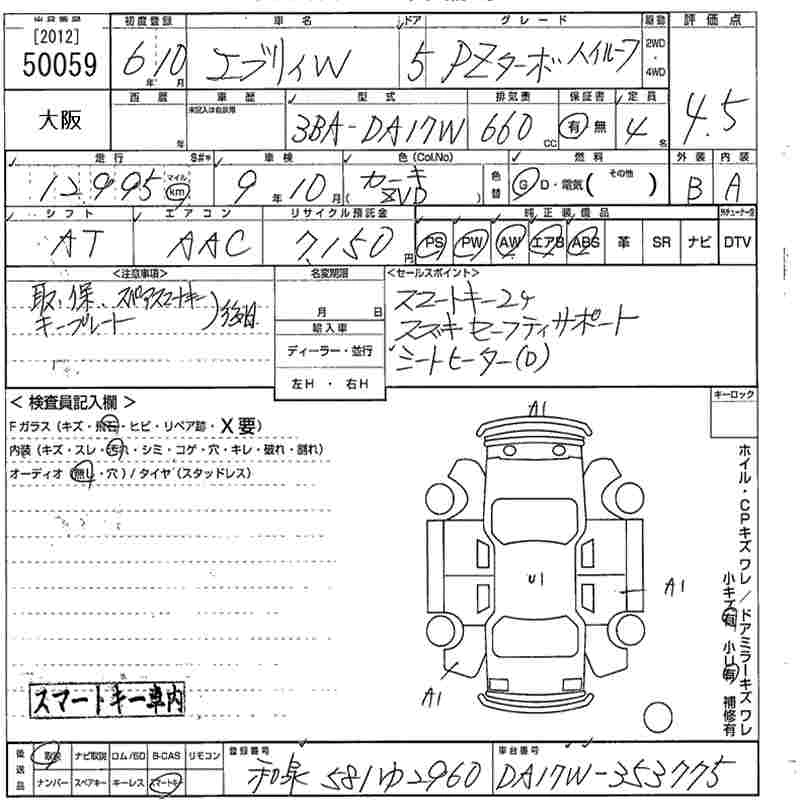 [2012]
50059
大阪
初度登録 車名 ドア グレード 駆動 評価点
6年10月 エブリィW 5 PZターボ ハイルーフ 2WD・4WD
4.5
西暦 車歴 型式 排気量 保証書 定員
年 未記入は自家用 3BA-DA17W 660cc 有 無 4名
走行 S#* 車検 色(Col.No) 色替 燃料 外装 内装
12995 マイル km 9年10月 カーキ ( ZVD ) G D・電気( その他 ) B A
シフト エアコン リサイクル預託金 純正装備品
AT AAC 7,150円 PS PW AW エアB ABS 革 SR ナビ DTV
<注意事項> 名変期限 <セールスポイント>
取、保、スペアスマートキー
キープレート )後日
月 日
輸入車
ディーラー・並行
左H・右H
スマートキー2ヶ
スズキセーフティサポート
シートヒーター(D)
<検査員記入欄>
Fガラス(キズ・飛石・ヒビ・リペア跡・X要)
内装(キズ・スレ・汚れ・シミ・コゲ・穴・キレ・破れ・割れ)
オーディオ(無し・穴)/タイヤ(スタッドレス)
キーロック
A1
U1
A1
A1
ホイル・CPキズ ワレ/ドアミラーキズ ワレ
小キズ有 小U有 補修有
スマートキー車内
後送品 取説 ナビ取説 ロム/SD B-CAS リモコン
ナンバー スペアキー キーレス スマートキー
登録番号 和泉 581ゆ2960
車台番号 DA17W-353775